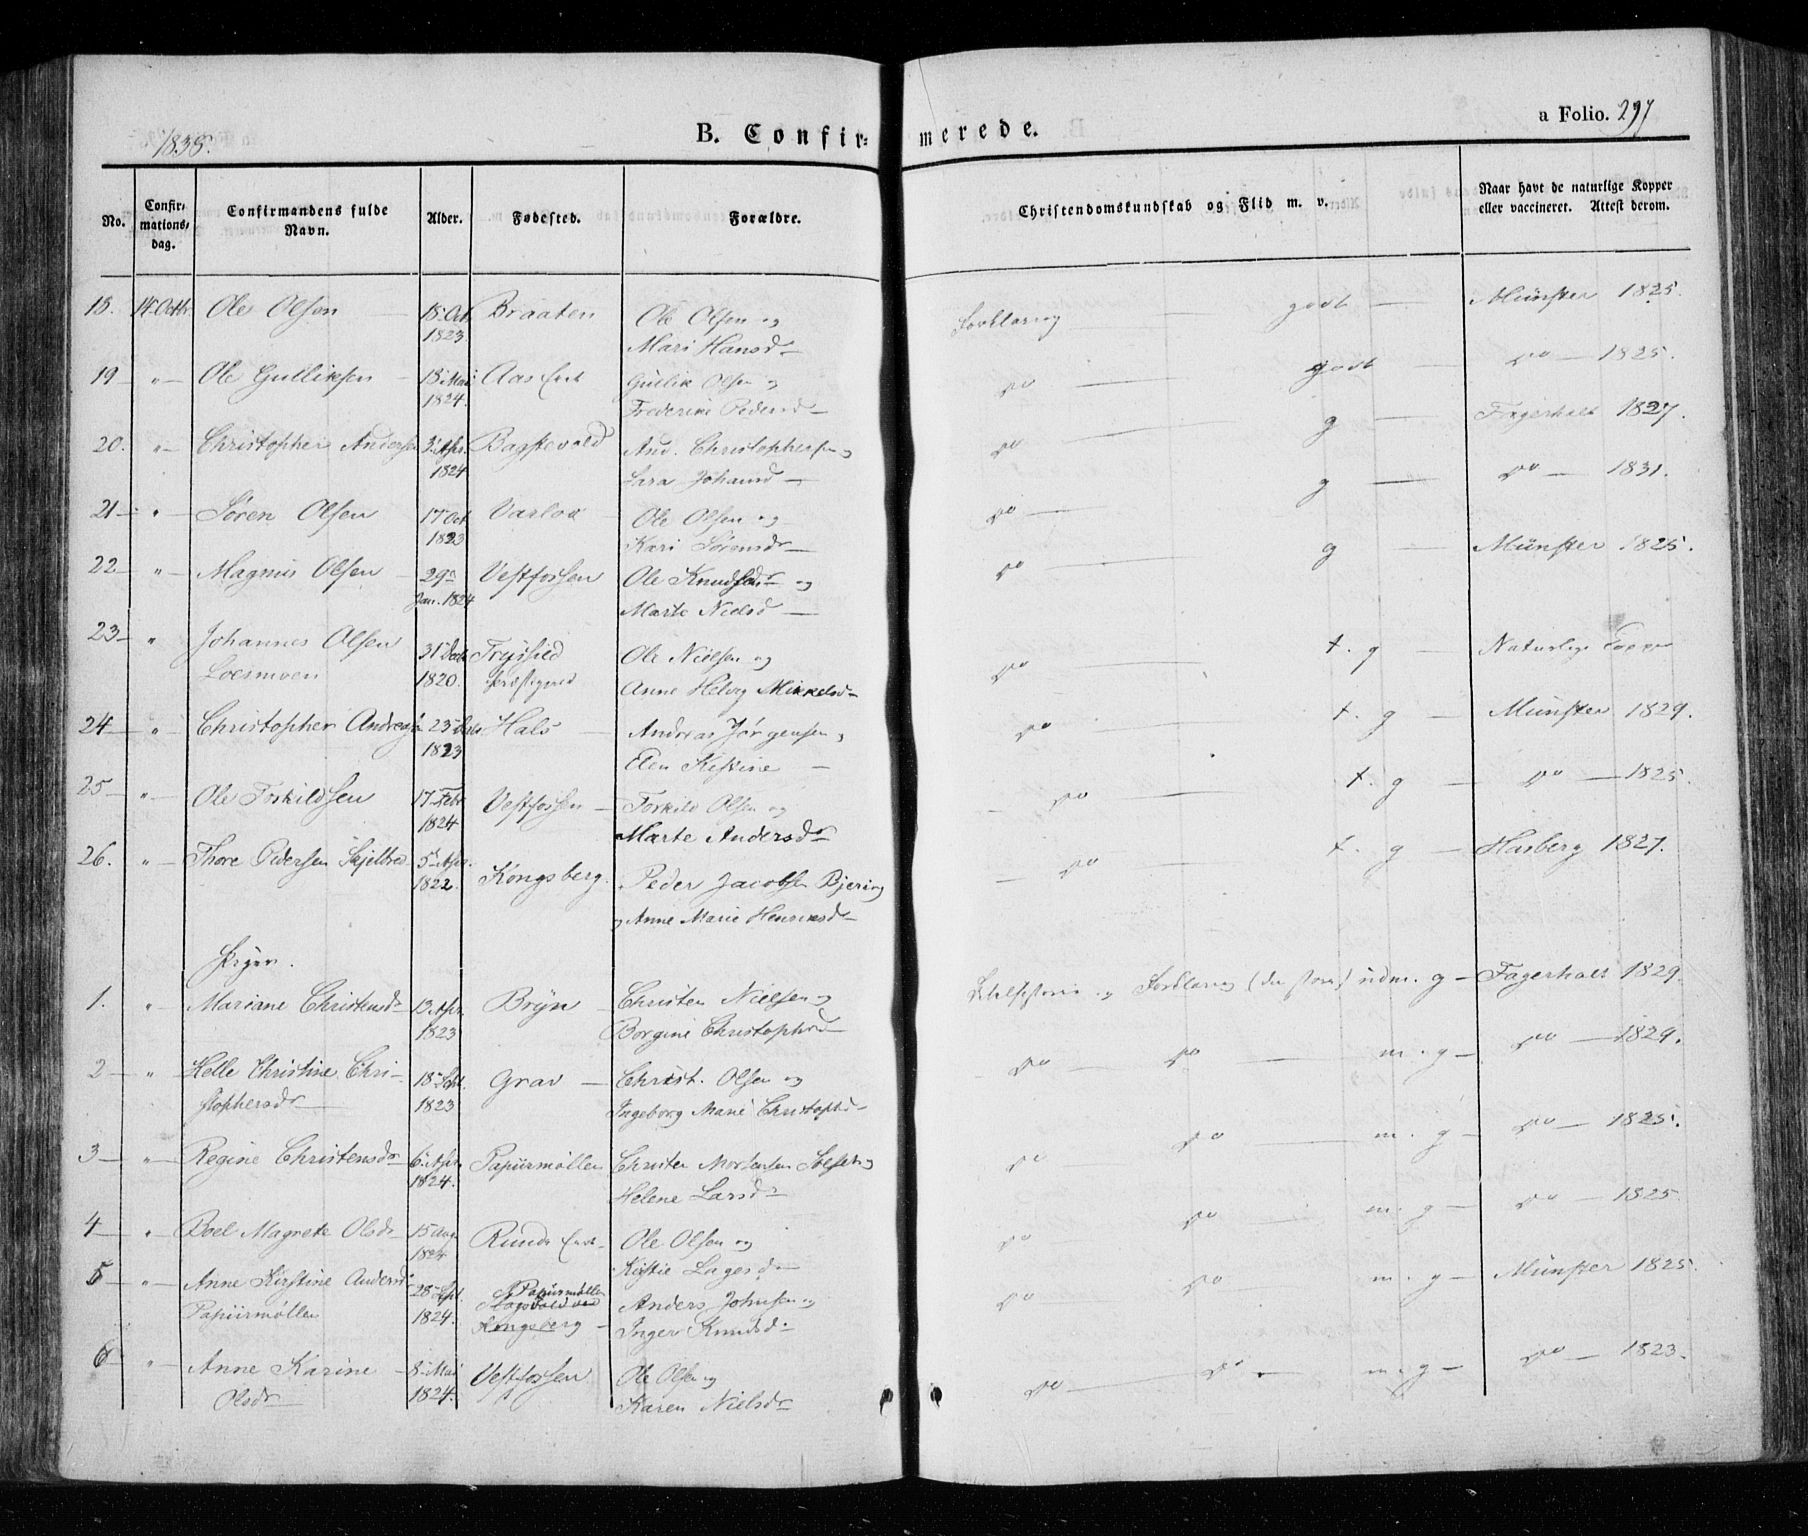 1838.
B. Confir= merede.
a Folio. 297
No. Confirmations-dag. Confirmandens fulde Navn. Alder. Fødested. Forældre. Christendomskundskab og Flid m. v. Naar havt de naturlige Kopper eller vaccineret. Attest derom.
18. 14 Octbr. Ole Olsen 18 Oct Braaten Ole Olsen og Forklaring godt Münster 1825.
1823. Mari Hansd
19 " Ole Gulliksen 18 Mai Aas Gullik Olsen og do godt do 1825.
1824. Frederike Pedersd
20. " Christopher Andersen 3 Apr. And. Christophersen og do g Fagerholt 1827.
1824 Lara Johansd
21 " Søren Olsen 17 Oct Varlo Ole Olsen og do g do 1831.
1823 Kari Sørensdr
22 " Magnus Olsen 29 Vestfossen Ole Knudsen og do g Münster 1825.
Jan. 1824 Marte Nielsd
23 " Johannes Olsen 31 Decbr Ole Nielsen og do t. g Naturlige Kopper
Loesmoen 1820. Anne Helvig Mikkelsd
24 " Christopher Andreas 23 Decbr Hals Andreas Jørgensen og do t. g Münster 1829.
1823 Elen Kistine
25 " Ole Torkildsen 17 Febr Vestfossen Torkild Olsen og do t. g do 1825.
1824 Marte Andersdr
26. " Thore Pedersen 5 Apr. Kongsberg. Peder Jacobsen Bjering do t. g Hasberg 1827.
1822. og Anne Marie Henriksd
Piger.
1. " Mariane Christensd 13 Apr. Bryn Christen Nielsen og Bibelhistorie og Forklaring (den store) udm. g Fagerholt 1829.
1823 Borgine Christophersd
2 " Helle Christine Chri- 18 Sept. Grav Christ. Olsen og do do m. g do 1829.
stophersdr 1823 Ingeborg Marie Christophd
3 " Regine Christensdr 6 Apr. Papiirmøllen Christen Mortensen og do do m. g do 1825.
1824. Helene Larsd
4 " Boel Magrete Olsdr 15 Aug Runde Ole Olsen og do do m. g do 1825.
1824 Kistie Lagesd
5 " Anne Kirstine Andersd 28 Sept. Papirmøllen Anders Johnsen og do do m. g Münster 1825.
Papiirmøllen 1824. Kongsberg Inger Knudsd
6 " Anne Karine 8 Mai Vestfossen Ole Olsen og do do m. g do 1823.
Olsdr 1824. Karen Nielsdr